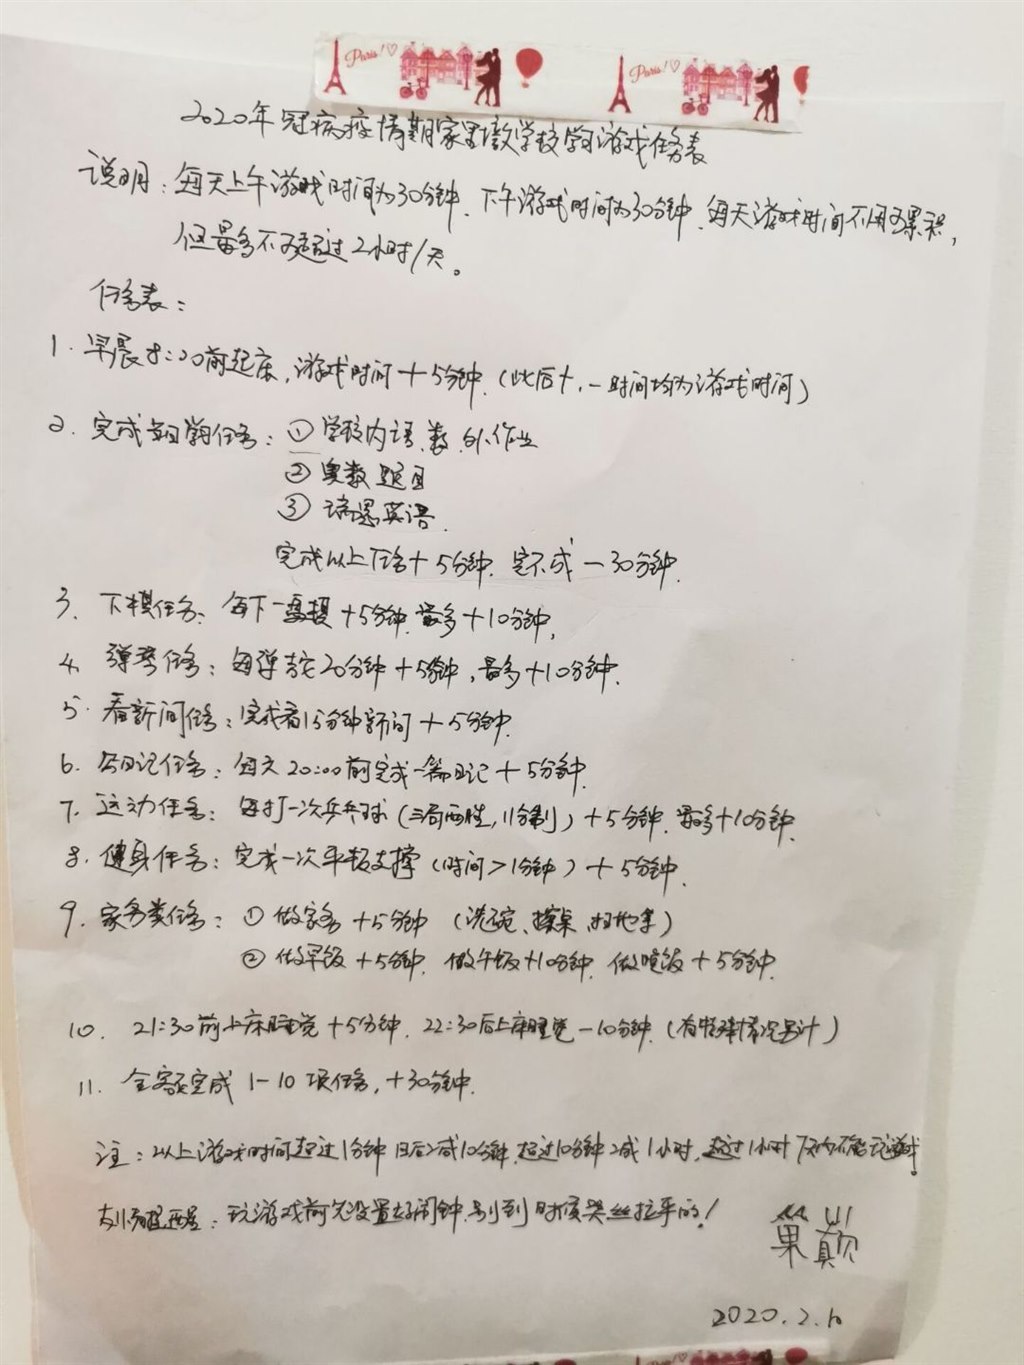 Paris! Paris!
2020年冠疾疫情期家里蹲学校学习游戏任务表
说明：每天上午游戏时间为30分钟，下午游戏时间为30分钟，每天游戏时间不用可累积，
但最多不可超过2小时/天。
任务表：
1. 早晨8:20前起床，游戏时间+5分钟（此后+、-时间均为游戏时间）
2. 完成每日学习任务：①学校内语、数、外作业
②奥数题目
③瑞思英语
完成以上任务+5分钟，完不成-30分钟
3. 下棋任务：每下一盘棋+5分钟，最多+10分钟，
4. 弹琴任务：每弹20分钟+5分钟，最多+10分钟
5. 看新闻任务：完成看15分钟新闻+5分钟
6. 写日记任务：每天20:00前完成一篇日记+5分钟
7. 运动任务：每打一次乒乓球（三局两胜，11分制）+5分钟，最多+10分钟
8. 健身任务：完成一次平板支撑（时间>1分钟）+5分钟
9. 家务类任务：①做家务+5分钟（洗碗、擦桌、扫地等）
②做早饭+5分钟，做午饭+10分钟，做晚饭+5分钟
10. 21:30前上床睡觉+5分钟，22:30后上床睡觉-10分钟（有特殊情况另计）
11. 全额完成1-10项任务，+30分钟
注：以上游戏时间超过1分钟日后减10分钟，超过10分钟减1小时，超过1小时不能玩游戏
特别提醒：玩游戏前先设置好闹钟，别到时候哭丝拉乎的！
巢巅
2020.2.10